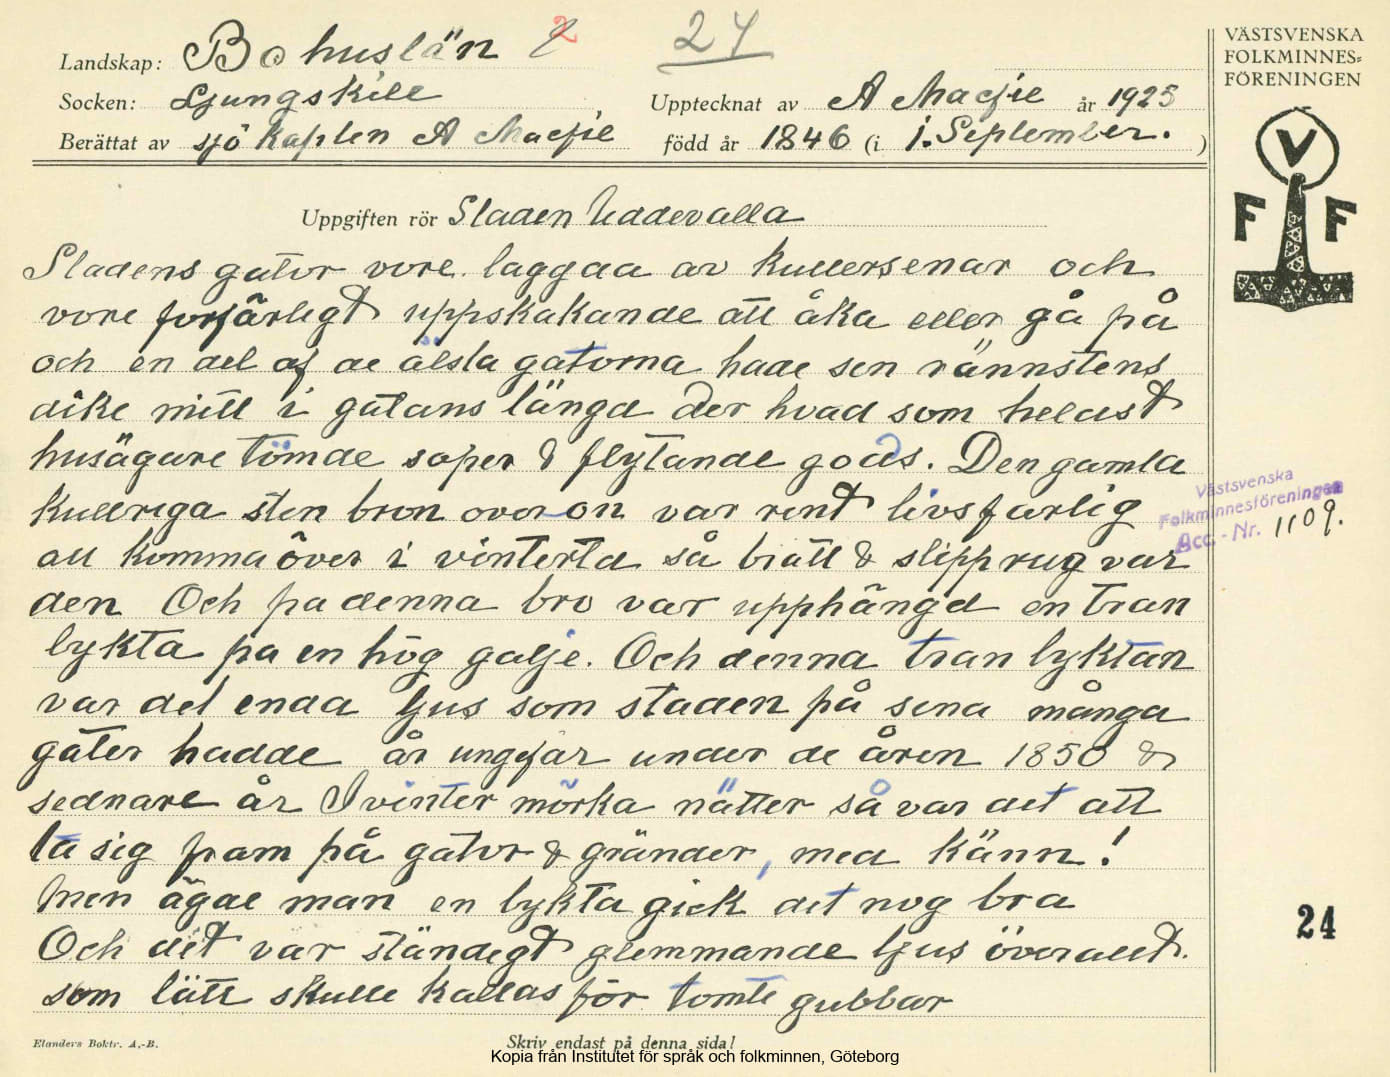 VÄSTSVENSKA
FOLKMINNES=
FÖRENINGEN
Landskap: Bohuslän 2
24
Socken: Ljungskile
Upptecknat av A Macfie år 1925
Berättat av sjökapten A Macfie
född år 1846 (i 1. September.)
Uppgiften rör Staden Uddevalla
Stadens gator vore laggda av kullersenar och
vore forfärligt uppskakande att åka eller gå på
och en del af de älsta gatorna hade sen rännstens
dike mitt i gatans längd der hvad som helast
husägare tömde soper & flytande gods. Den gamla
kullriga sten bron over on var rent livsfarlig
att komma över i vinterta så bratt & slipprug var
den Och pa denna bro var upphängd en tran
lykta pa en hög galje. Och denna tran lyktan
var det enda ljus som staden på sena många
gater hadde år ungefär under de åren 1850 &
sednare år I vinter mörka nätter så var det att
ta sig fram på gator & gränder, med känn!
Men ägde man en lykta gick det nog bra
Och det var ständigt glemmande ljus överallt.
som lätt skulle kallas för tomte gubbar
V
F F
Västsvenska
Folkminnesföreningen
Acc.-Nr. 1109.
24
Elanders Boktr. A.-B.
Skriv endast på denna sida!
Kopia från Institutet för språk och folkminnen, Göteborg